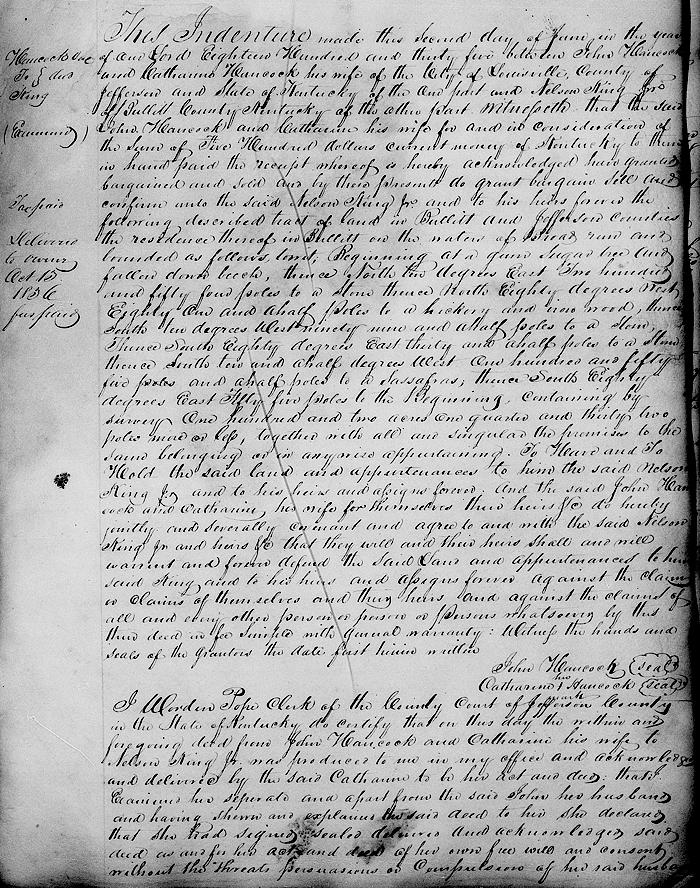 This Indenture made this second day of June in the year
of our Lord Eighteen Hundred and thirty five between John Hancock
and Catharine Hancock his wife of the City of Louisville, County of
Jefferson and State of Kentucky of the one part and Nelson King Jr
of Bullitt County Kentucky of the other part Witnesseth that the said
John Hancock and Catharine his wife for and in consideration of
the sum of Five Hundred dollars current money of Kentucky to them
in hand paid the receipt whereof is hereby acknowledged have granted
bargained and sold and by these presents do grant bargain sell and
confirm unto the said Nelson King Jr and to his heirs forever the
following described tract of land in Bullitt and Jefferson Counties
the residence thereof in Bullitt on the waters of run and
bounded as follows, towit, Beginning at a gum Sugar tree and
fallen down beech, thence North ten degrees East Two hundred
and fifty four poles to a stone thence North Eighty degrees West
Eighty One and a half Poles to a hickory and iron wood, thence
South ten degrees West ninety nine and a half poles to a stone,
Thence South Eighty degrees East thirty and a half poles to a stone
thence South ten and a half degrees West One hundred and fifty
five poles and a half poles to a Sassafras, thence South Eighty
degrees East Fifty five poles to the Beginning, Containing by
survey One hundred and two acres one quarter and thirty two
poles more or less, together with all and singular the premises to the
same belonging or in anywise appertaining. To Have and To
Hold the said land and appurtenances to him the said Nelson
King Jr and to his heirs and assigns forever: And the said John Han
cock and Catharine, his wife for themselves their heirs &c do hereby
jointly and severally covenant and agree to and with the said Nelson
King Jr and heirs &c that they will and their heirs shall and will
warrant and forever defend the said Land and appurtenances to him
said King and to his heirs and assigns forever against the claim
or claims of themselves and their heirs and against the claims of
all and every other person or person or Persons whatsoever by this
their deed in fee simple with general warranty: Witness the hands and
seals of the grantors the date first herein written
John Hancock (seal)
her
Catharine + Hancock (seal)
mark
I Worden Pope Clerk of the County Court of Jefferson County
in the State of Kentucky do certify that on this day the within and
foregoing deed from John Hancock and Catharine his wife to
Nelson King Jr was produced to me in my office and acknowledged
and delivered by the said Catharine to be her act and deed: that I
Examined her seperate and apart from the said John her husband
and having shewn and explained the said deed to her she declared
that she had signed sealed delivered and acknowledged said
deed as and for her act and deed of her own free will and consent
without the threats persuasions or Compulsion of his said husba
Hancock &c
To } deed
King
(Examined)
Tax paid
Delivered
to owner
Oct 15
1836
fees paid